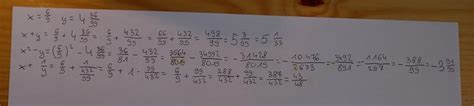 x = 6/9 y = 4 36/99
x+y = 6/9 + 4 36/99 = 6/9 + 432/99 = 66/99 + 432/99 = 498/99 = 5 3/99 = 5 1/33
x²-y = (6/9)² - 4 36/99 = 36/81 - 432/99 = 3564/8019 - 34992/8019 = - 31428/8019 = - 10476/2673 = - 3492/891 = - 1164/297 = - 388/99 = - 3 91/99
x + 1/y = 6/9 + 1/(432/99) = 6/9 + 1 · 99/432 = 6/9 + 99/432 = 288/432 + 99/432 = 387/432 = 43/48